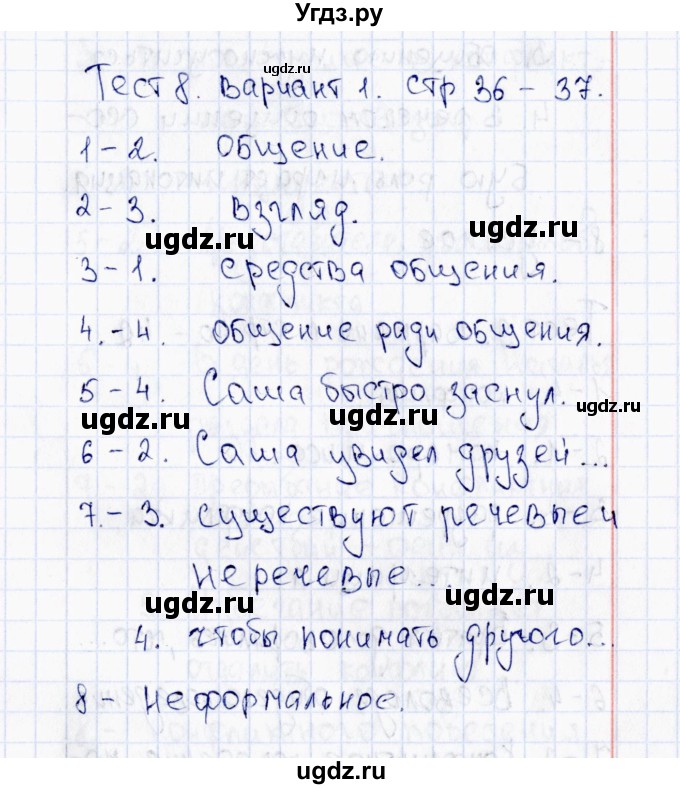 Угдз.ру
Тест 8. Вариант 1. стр 36 - 37.
1 - 2. Общение.
2 - 3. Взгляд.
ugdz.ru ugdz.ru
3 - 1. Средства общения.
4. - 4. Общение ради общения.
5 - 4. Саша быстро заснул.
ugdz.ru ugdz.ru ugdz.ru
6 - 2. Саша увидел друзей...
7. - 3. Существуют речевые и
неречевые...
ugdz.ru ugdz.ru
4. чтобы понимать другого...
8 - Неформальное.
ugdz.ru
ugdz.ru